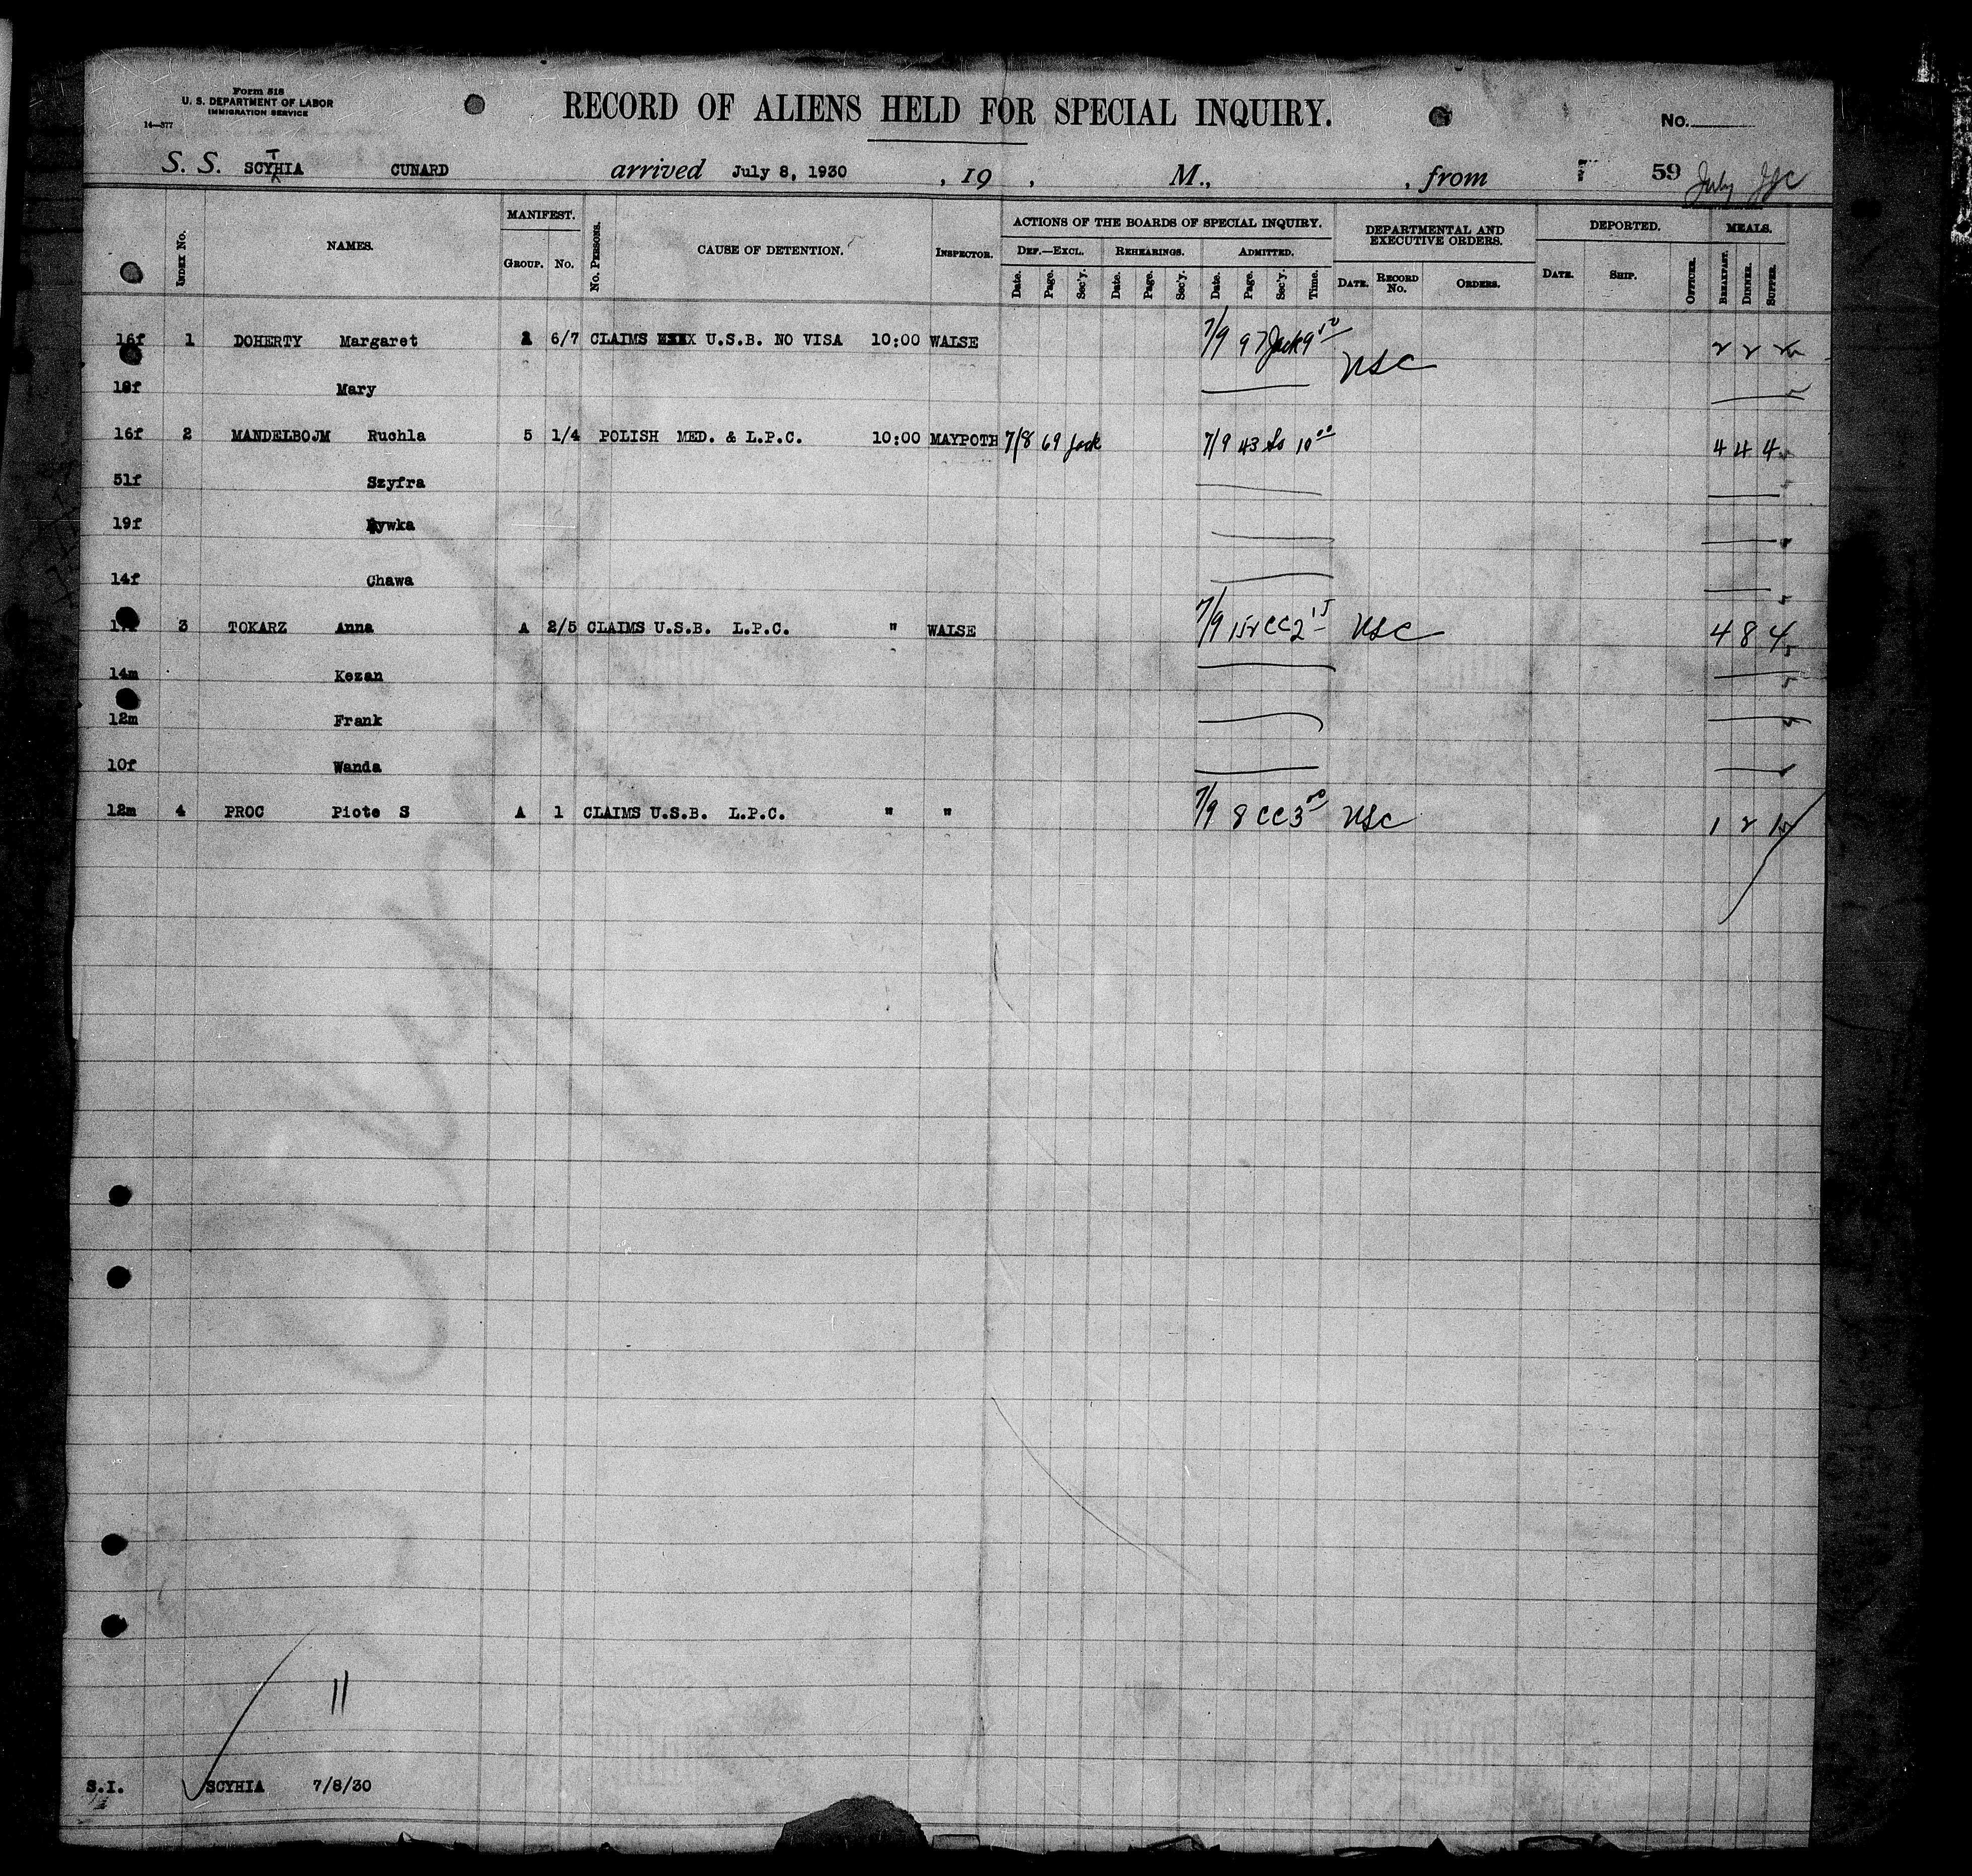 Form 518
U. S. DEPARTMENT OF LABOR
IMMIGRATION SERVICE
14—377
RECORD OF ALIENS HELD FOR SPECIAL INQUIRY.
No.
S. S. SCYTHIA CUNARD arrived July 8, 1930 , 19 , M., , from 59 July
INDEX No. NAMES. MANIFEST. GROUP. No. No. PERSONS. CAUSE OF DETENTION. INSPECTOR. ACTIONS OF THE BOARDS OF SPECIAL INQUIRY. DEF.—EXCL. REHEARINGS. ADMITTED. DEPARTMENTAL AND EXECUTIVE ORDERS. DEPORTED. MEALS.
Date. Page. Sec'y. Date. Page. Sec'y. Date. Page. Sec'y. Time. DATE. RECORD No. ORDERS. DATE. SHIP. OFFICER. BREAKFAST. DINNER. SUPPER.
16f 1 DOHERTY Margaret 6/7 CLAIMS U.S.B. NO VISA 10:00 WALSE 7/9 97 Jack 9 USC 2 2 2
18f Mary
16f 2 MANDELBOJM Ruchla 5 1/4 POLISH MED. & L.P.C. 10:00 MAYPOTH 7/8 69 Jack 7/9 43 So 10 00 4 4 4
51f Szyfra
19f Rywka
14f Chawa
3 TOKARZ Anna A 2/5 CLAIMS U.S.B. L.P.C. " WALSE 7/9 152 CC 2 15 USC 4 8 4
14m Kezan
12m Frank
10f Wanda
12m 4 PROC Piote S A 1 CLAIMS U.S.B. L.P.C. " " 7/9 8 CC 3 00 USC 1 2 1
11
S.I. SCYHIA 7/8/30